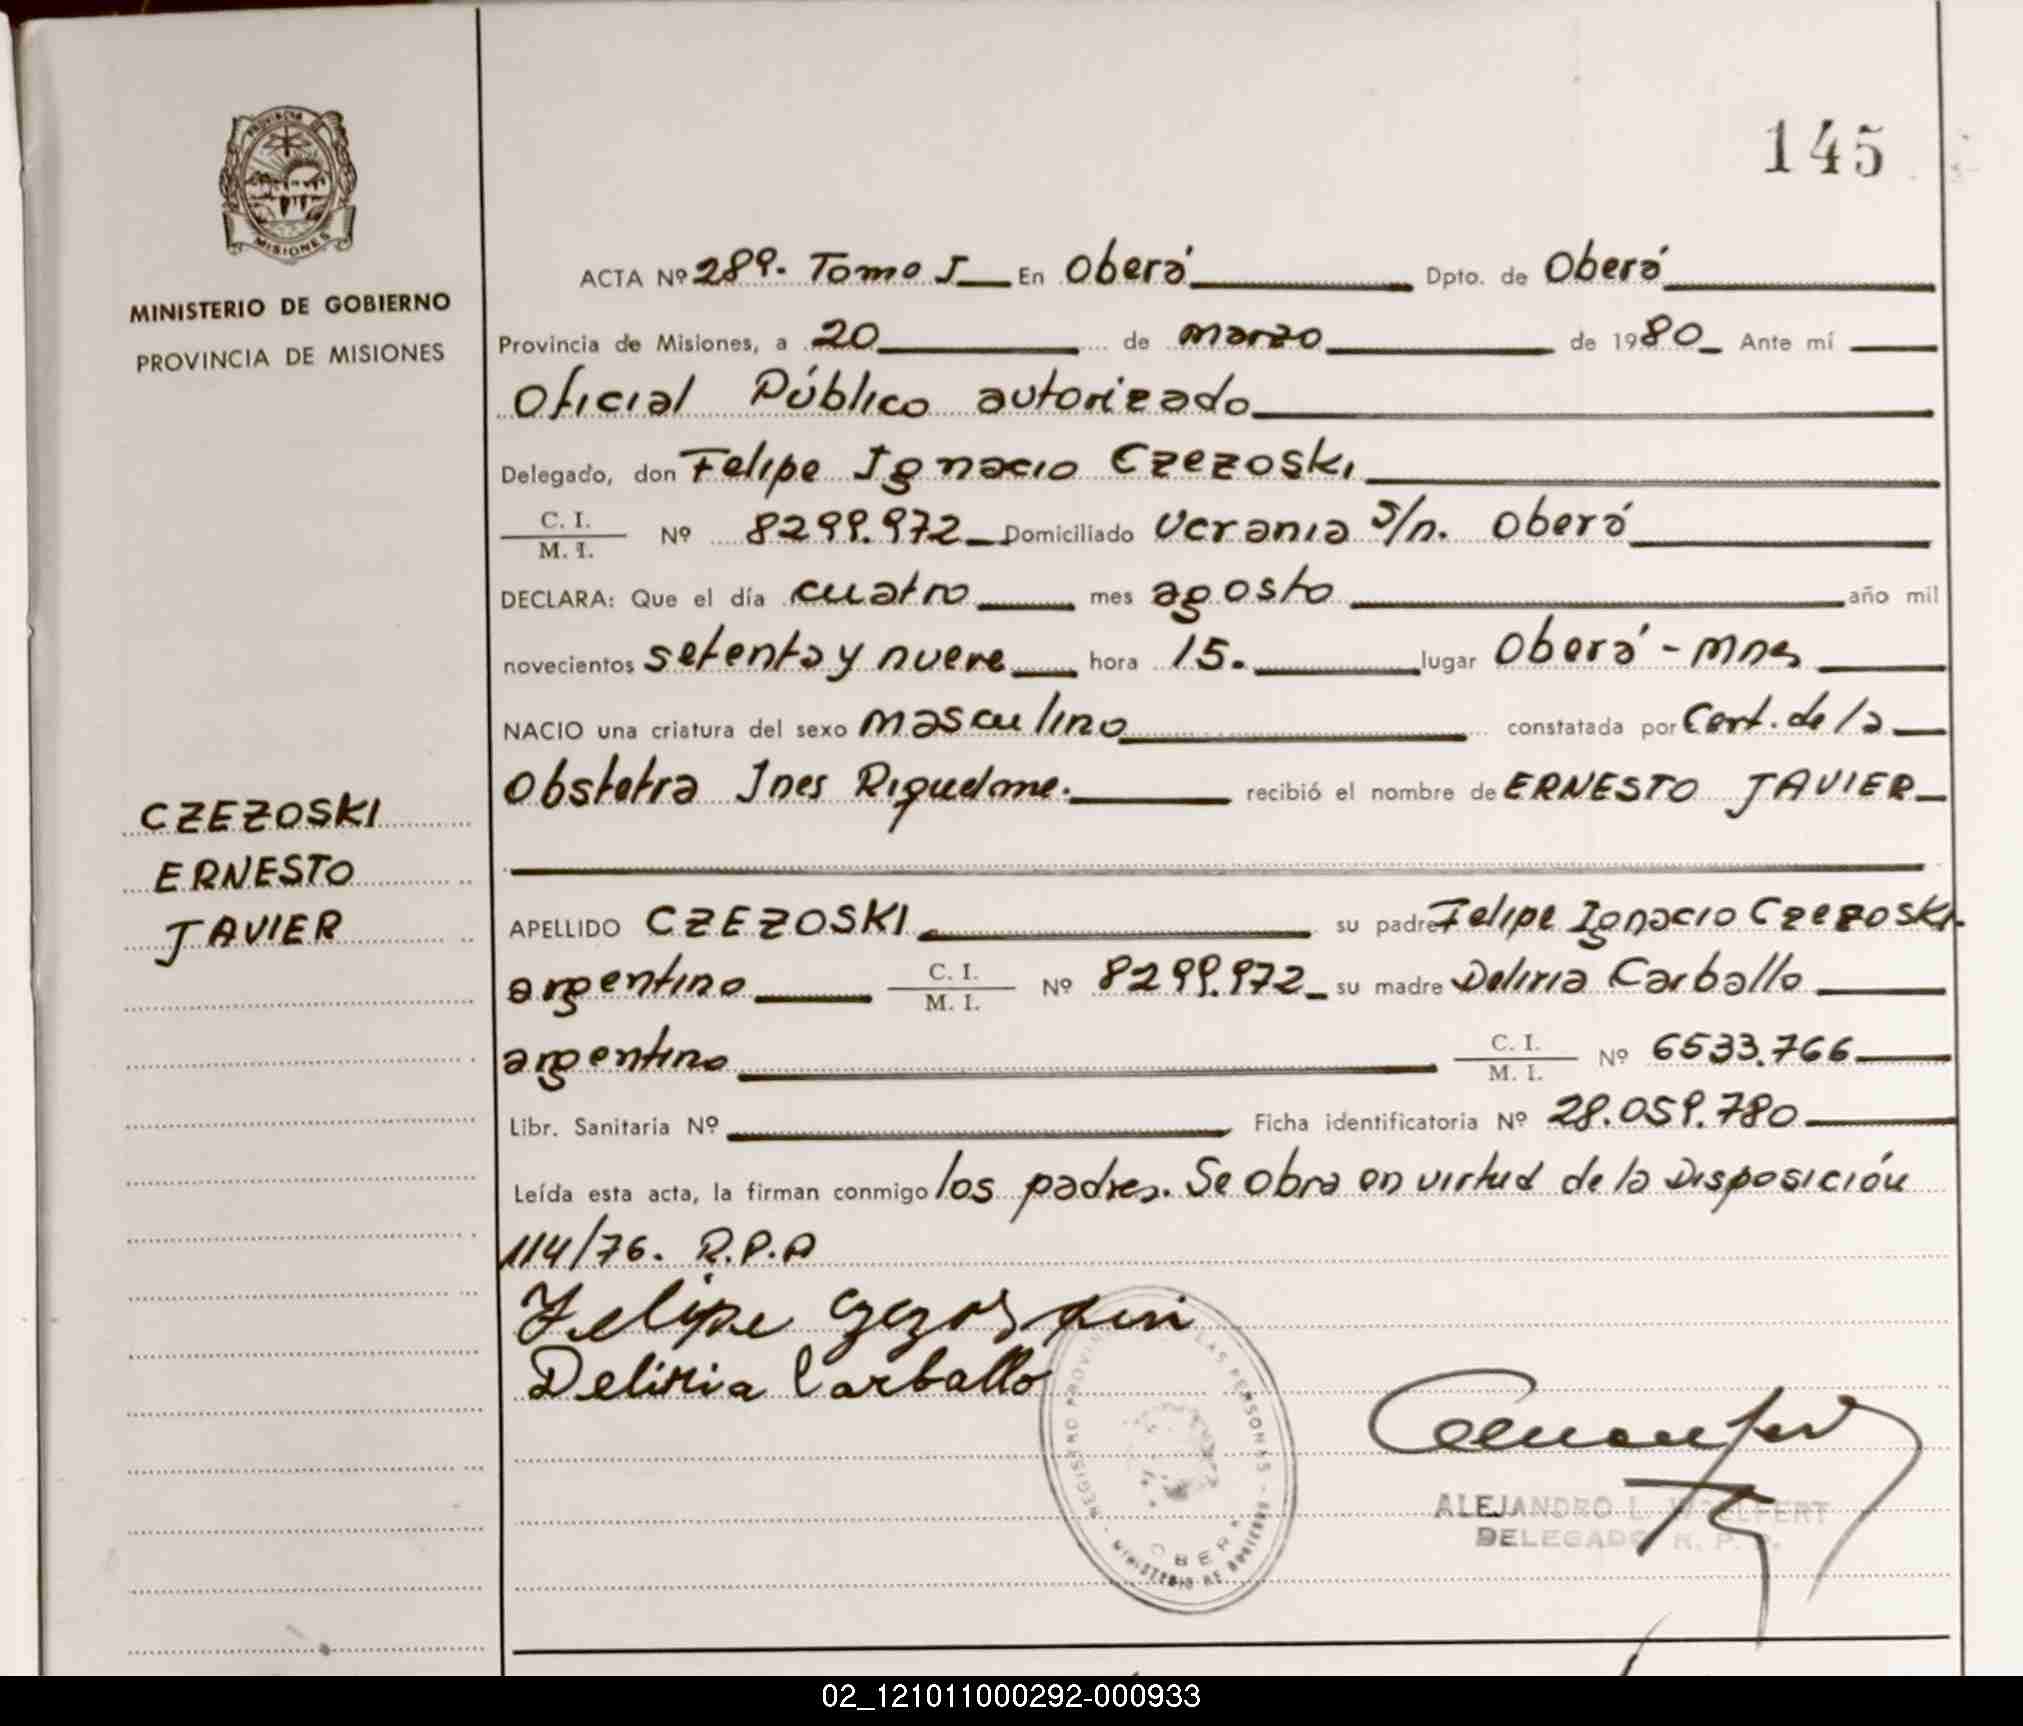 PROVINCIA DE
MISIONES
MINISTERIO DE GOBIERNO
PROVINCIA DE MISIONES
145
ACTA Nº 289. Tomo I En Oberá Dpto. de Oberá
Provincia de Misiones, a 20 de marzo de 1980 Ante mí
Oficial Público autorizado
Delegado, don Felipe Ignacio Czezoski
C. I.
M. I. Nº 8299.972 Domiciliado Ucrania s/n. Oberá
DECLARA: Que el día cuatro mes agosto año mil
novecientos setenta y nueve hora 15. lugar Oberá - Mnes
NACIO una criatura del sexo masculino constatada por Cert. de la
Obstetra Ines Riquelme. recibió el nombre de ERNESTO JAVIER
CZEZOSKI
ERNESTO
JAVIER
APELLIDO CZEZOSKI su padre Felipe Ignacio Czezoski.
argentino C. I.
M. I. Nº 8299.972 su madre Deliria Carballo
argentino C. I.
M. I. Nº 6533.766
Libr. Sanitaria Nº Ficha identificatoria Nº 28.059.780
Leída esta acta, la firman conmigo los padres. Se obra en virtud de la Disposición
114/76. R.P.P
Felipe
Deliria Carballo
REGISTRO PROVINCIAL LAS PERSONAS
OBERA
MINISTERIO DE GOBIERNO
ALEJANDRO L. WOLFERT
DELEGADO R. P. P.
02_121011000292-000933